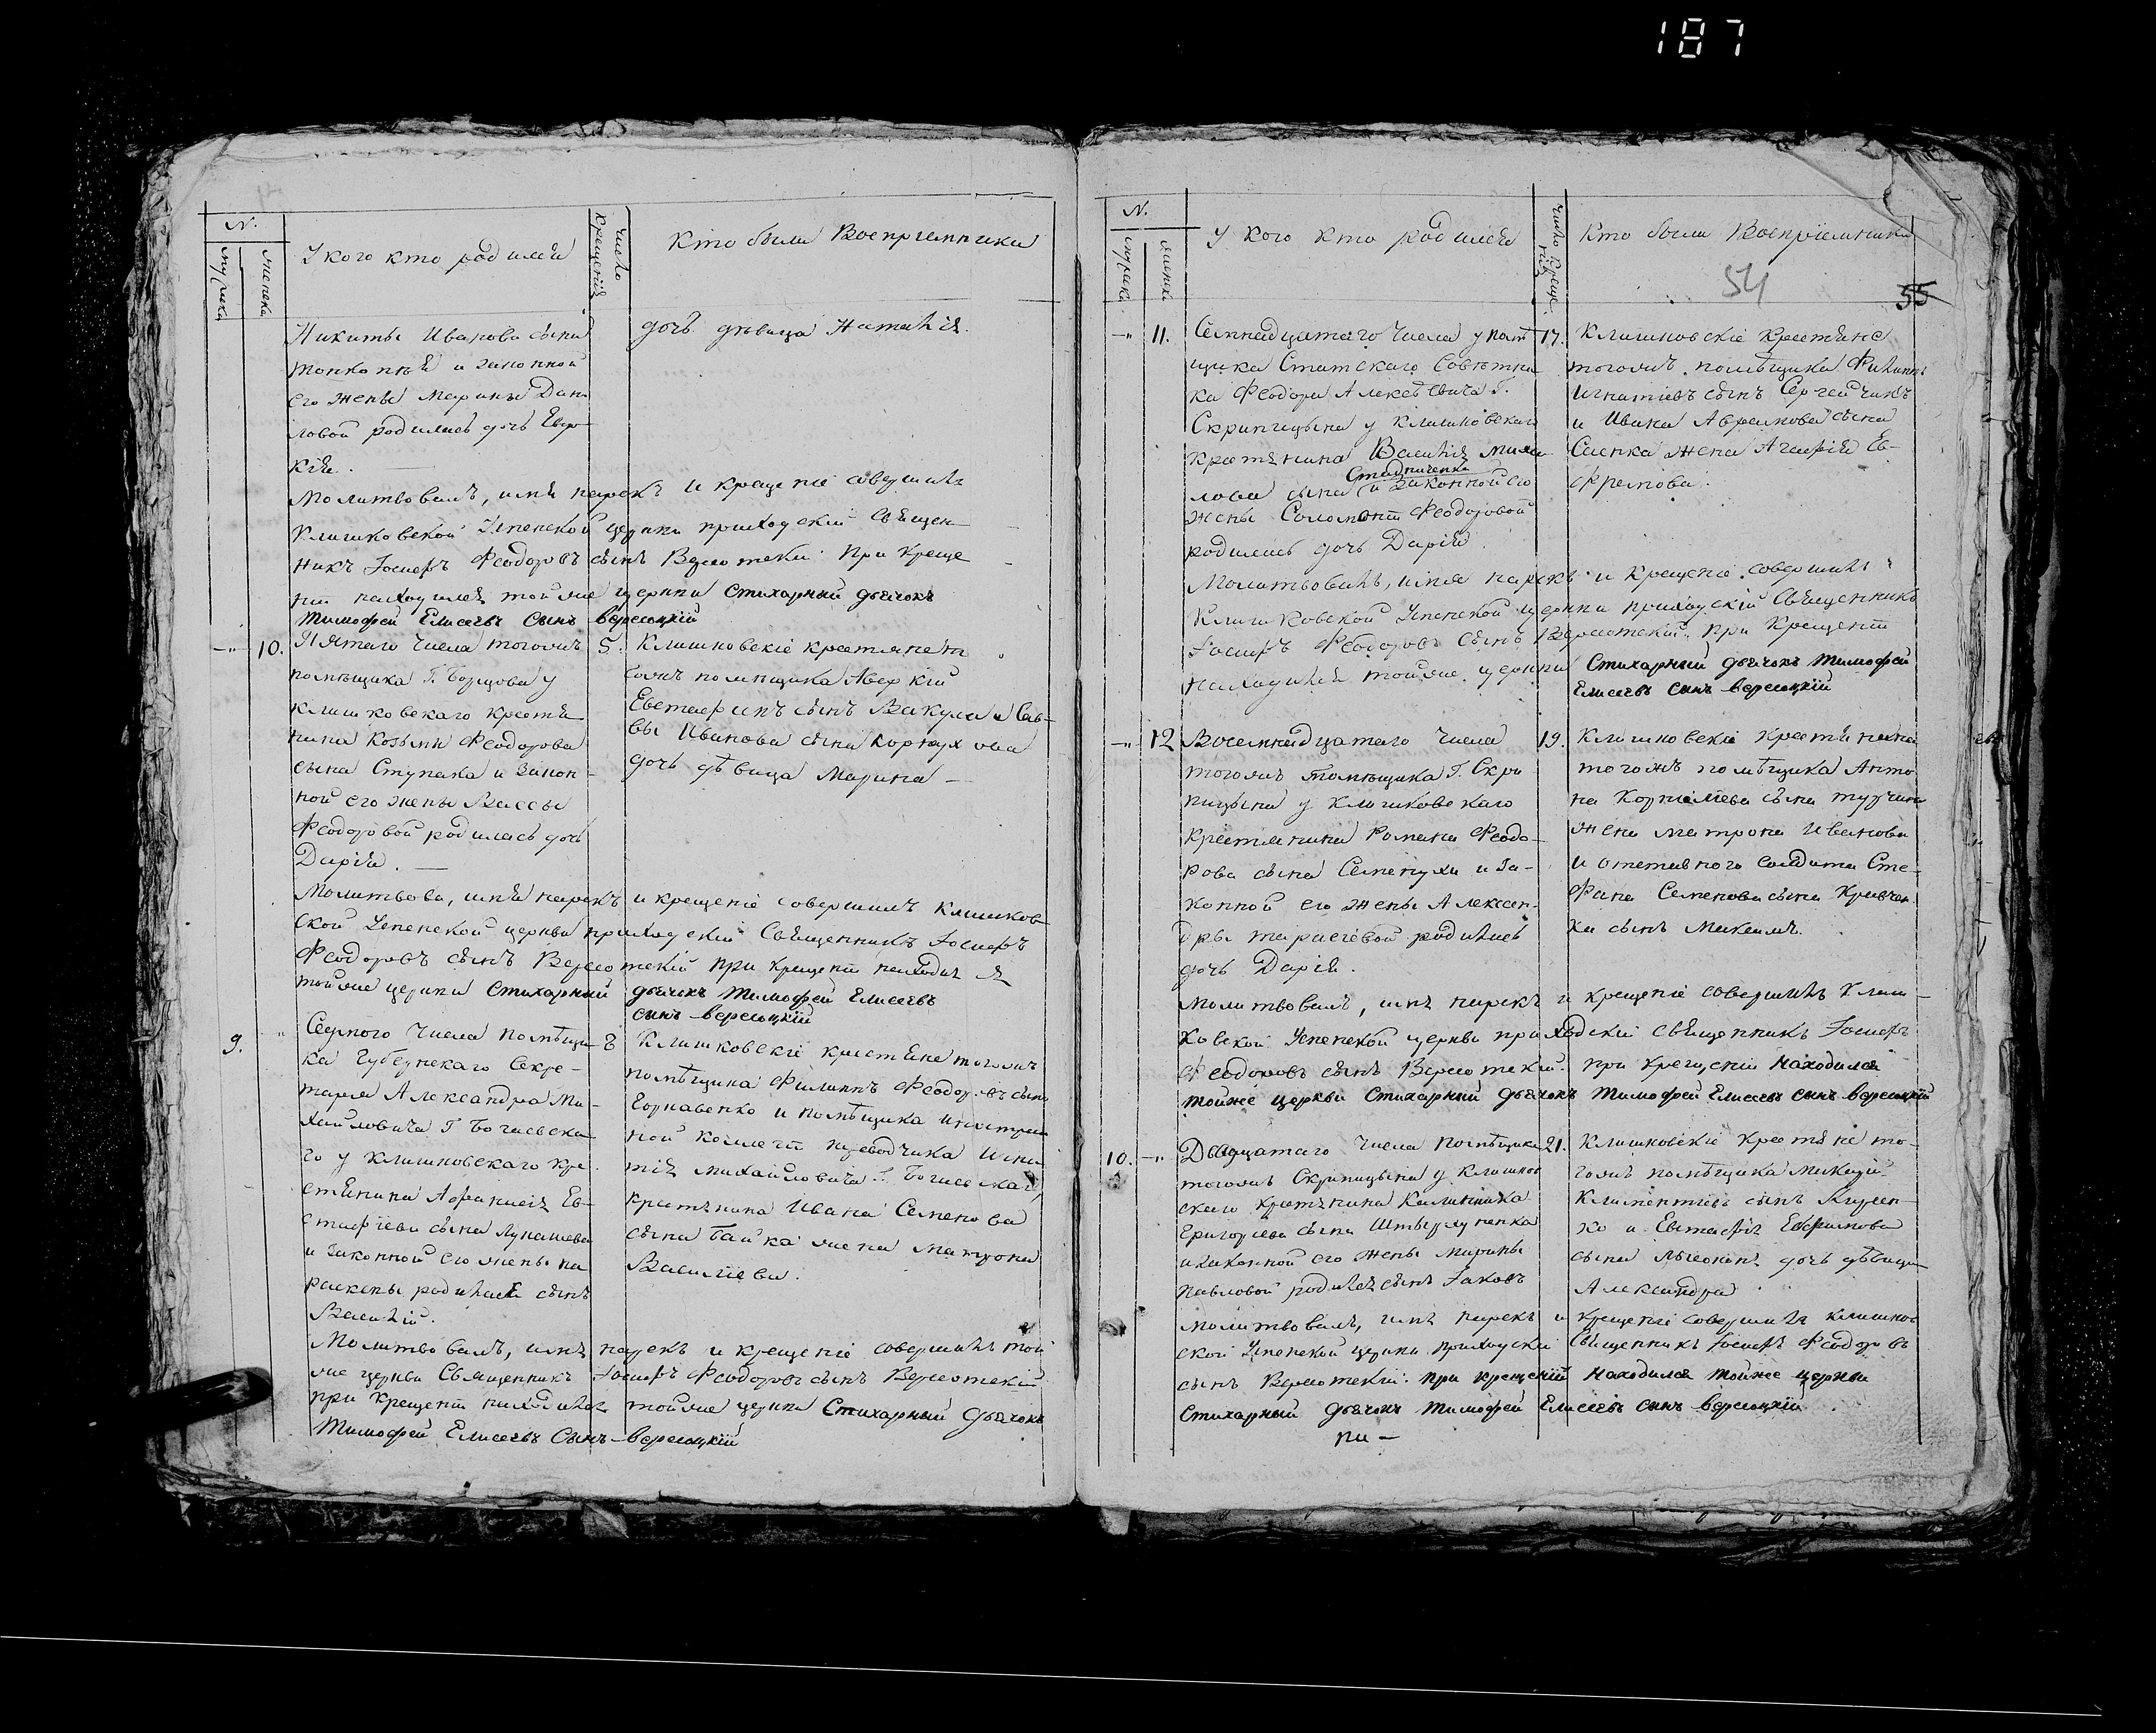 187
N.
мужска
женска
У кого кто родился
число крещенія
Кто были Воспріемники
Никиты Иванова сына
и законной
его жены Марины Дани
ловой родилась дочь Евдо
кія.
дочь дѣвица Наталія.
Молитвовалъ, имя нарекъ и крещеніе совершилъ
Клишковской Успенской церкви приходскій Священ
никъ Іосифъ Феодоровъ сынъ Вересотскій При креще
ніи находился тойже церкви Стихарный дьячокъ
Тимофей Елисеевъ Сынъ Вересоцкій
-"- 10.
Пятаго числа тогожъ
помѣщика Г. Борщова у
клишковскаго крестья
нина Козьмы Феодорова
сына Ступака и Закон-
ной его жены Вассы
Феодоровой родилась дочь
Дарія.
5.
Клишковскіе крестьяне то
гожъ помѣщика Аверкій
Евстафіевъ сынъ Вакула и Сав-
вы Иванова сына
дочь дѣвица Марина
Молитвова, имя нарекъ и крещеніе совершилъ Клишков
ской Успенской церкви приходскій Священникъ Іосифъ
Феодоровъ сынъ Вересотскій при крещеніи находился
тойже церкви Стихарный дьячокъ Тимофей Елисеевъ
сынъ Вересоцкій
9. "
Седмого Числа помѣщи
ка Губернскаго Секре-
таря Александра Ми-
хайловича Г Богаевска
го у Клишковскаго кре
стьянина Афанасія Ев-
стафіева сына Лукашева
и законной его жены Па
раскевы родился сынъ
Василій.
8
Клишковскіе крестьяне тогожъ
помѣщика Филиппъ Феодоровъ сынъ
и помѣщика Иностран
ной коллегіи переводчика Игна
тія Михайловича Г. Богаевскаго,
крестьянина Ивана Семенова
сына Байка жена Матрона
Василіева.
Молитвовалъ, имя нарекъ и крещеніе совершилъ той
же церкви Священникъ Іосифъ Феодоровъ сынъ Вересотскій
при крещеніи находился тойже церкви Стихарный Дьячокъ
Тимофей Елисеевъ Сынъ Вересоцкій
N.
мужска
женска
У кого кто родился
число креще нія
Кто были Воспріемники
54
55
-"- 11.
Семнадцатаго числа у помѣ
щика Статскаго Совѣтни
ка Феодора Алексѣевича Г.
Скрипицына у клишковскаго
крестянина Василія Михай
Стадниченка
лова сына и законной его
жены Соломоніи Феодоровой
родилась дочь Дарія
17.
Клишковскіе крестьяне
тогожъ помѣщика Филиппъ
Игнатіевъ сынъ Сергейчикъ
и Ивана Аврамова сына
Саенка жена Агафія Ев-
фремова.
Молитвовалъ, имя нарекъ и крещеніе совершилъ
Клишковской Успенской церкви приходскій Священникъ
Іосифъ Феодоровъ Сынъ Вересотскій. при Крещеніи
находился тойже церкви Стихарный дьячокъ Тимофей
Елисеевъ сынъ Вересоцкій
-"- 12
Восемнадцатаго Числа
тогожъ Помѣщика Г. Скри
пицына у клишковскаго
крестьянина Романа Феодо-
рова сына Семенухи и За-
конной его жены Алексан-
дры Тарасіевой родилась
дочь Дарія.
19.
Клишковскіе крестянина
тогожъ помѣщика Анто
на Корнилѣева сына Турчина
жена Матрона Иванова
и отставного солдата Сте-
фана Семенова сына Кривчен
ка сынъ Максимъ.
Молитвовалъ, имя нарекъ и крещеніе совершилъ Клиш-
ковской Успенской церкви приходскій священникъ Іосифъ
Феодоровъ сынъ Вересотскій. при крещеніи находился
тойже церкви Стихарный Дьячокъ Тимофей Елисеевъ сынъ Вересоцкій
10. -"
Двадцатаго числа Помѣщика
тогожъ Скрипицына у клишков
скаго крестянина Калинника
Григоріева сына
и законной его жены Марины
Павловой родился сынъ Іаковъ
21.
Клишковскіе крестяне то-
гожъ помѣщика
Климентіевъ сынъ
ко и Евстафія Евфимова
сына дочь дѣвица
Александра
Молитвовалъ, имя нарекъ и крещеніе совершилъ клишков
ской Успенской церкви приходскій Священникъ Іосифъ Феодоровъ
сынъ Вересотскій. при крещеніи находился тойже церкви
Стихарный дьячокъ Тимофей Елисеевъ сынъ Вересоцкій
ни-